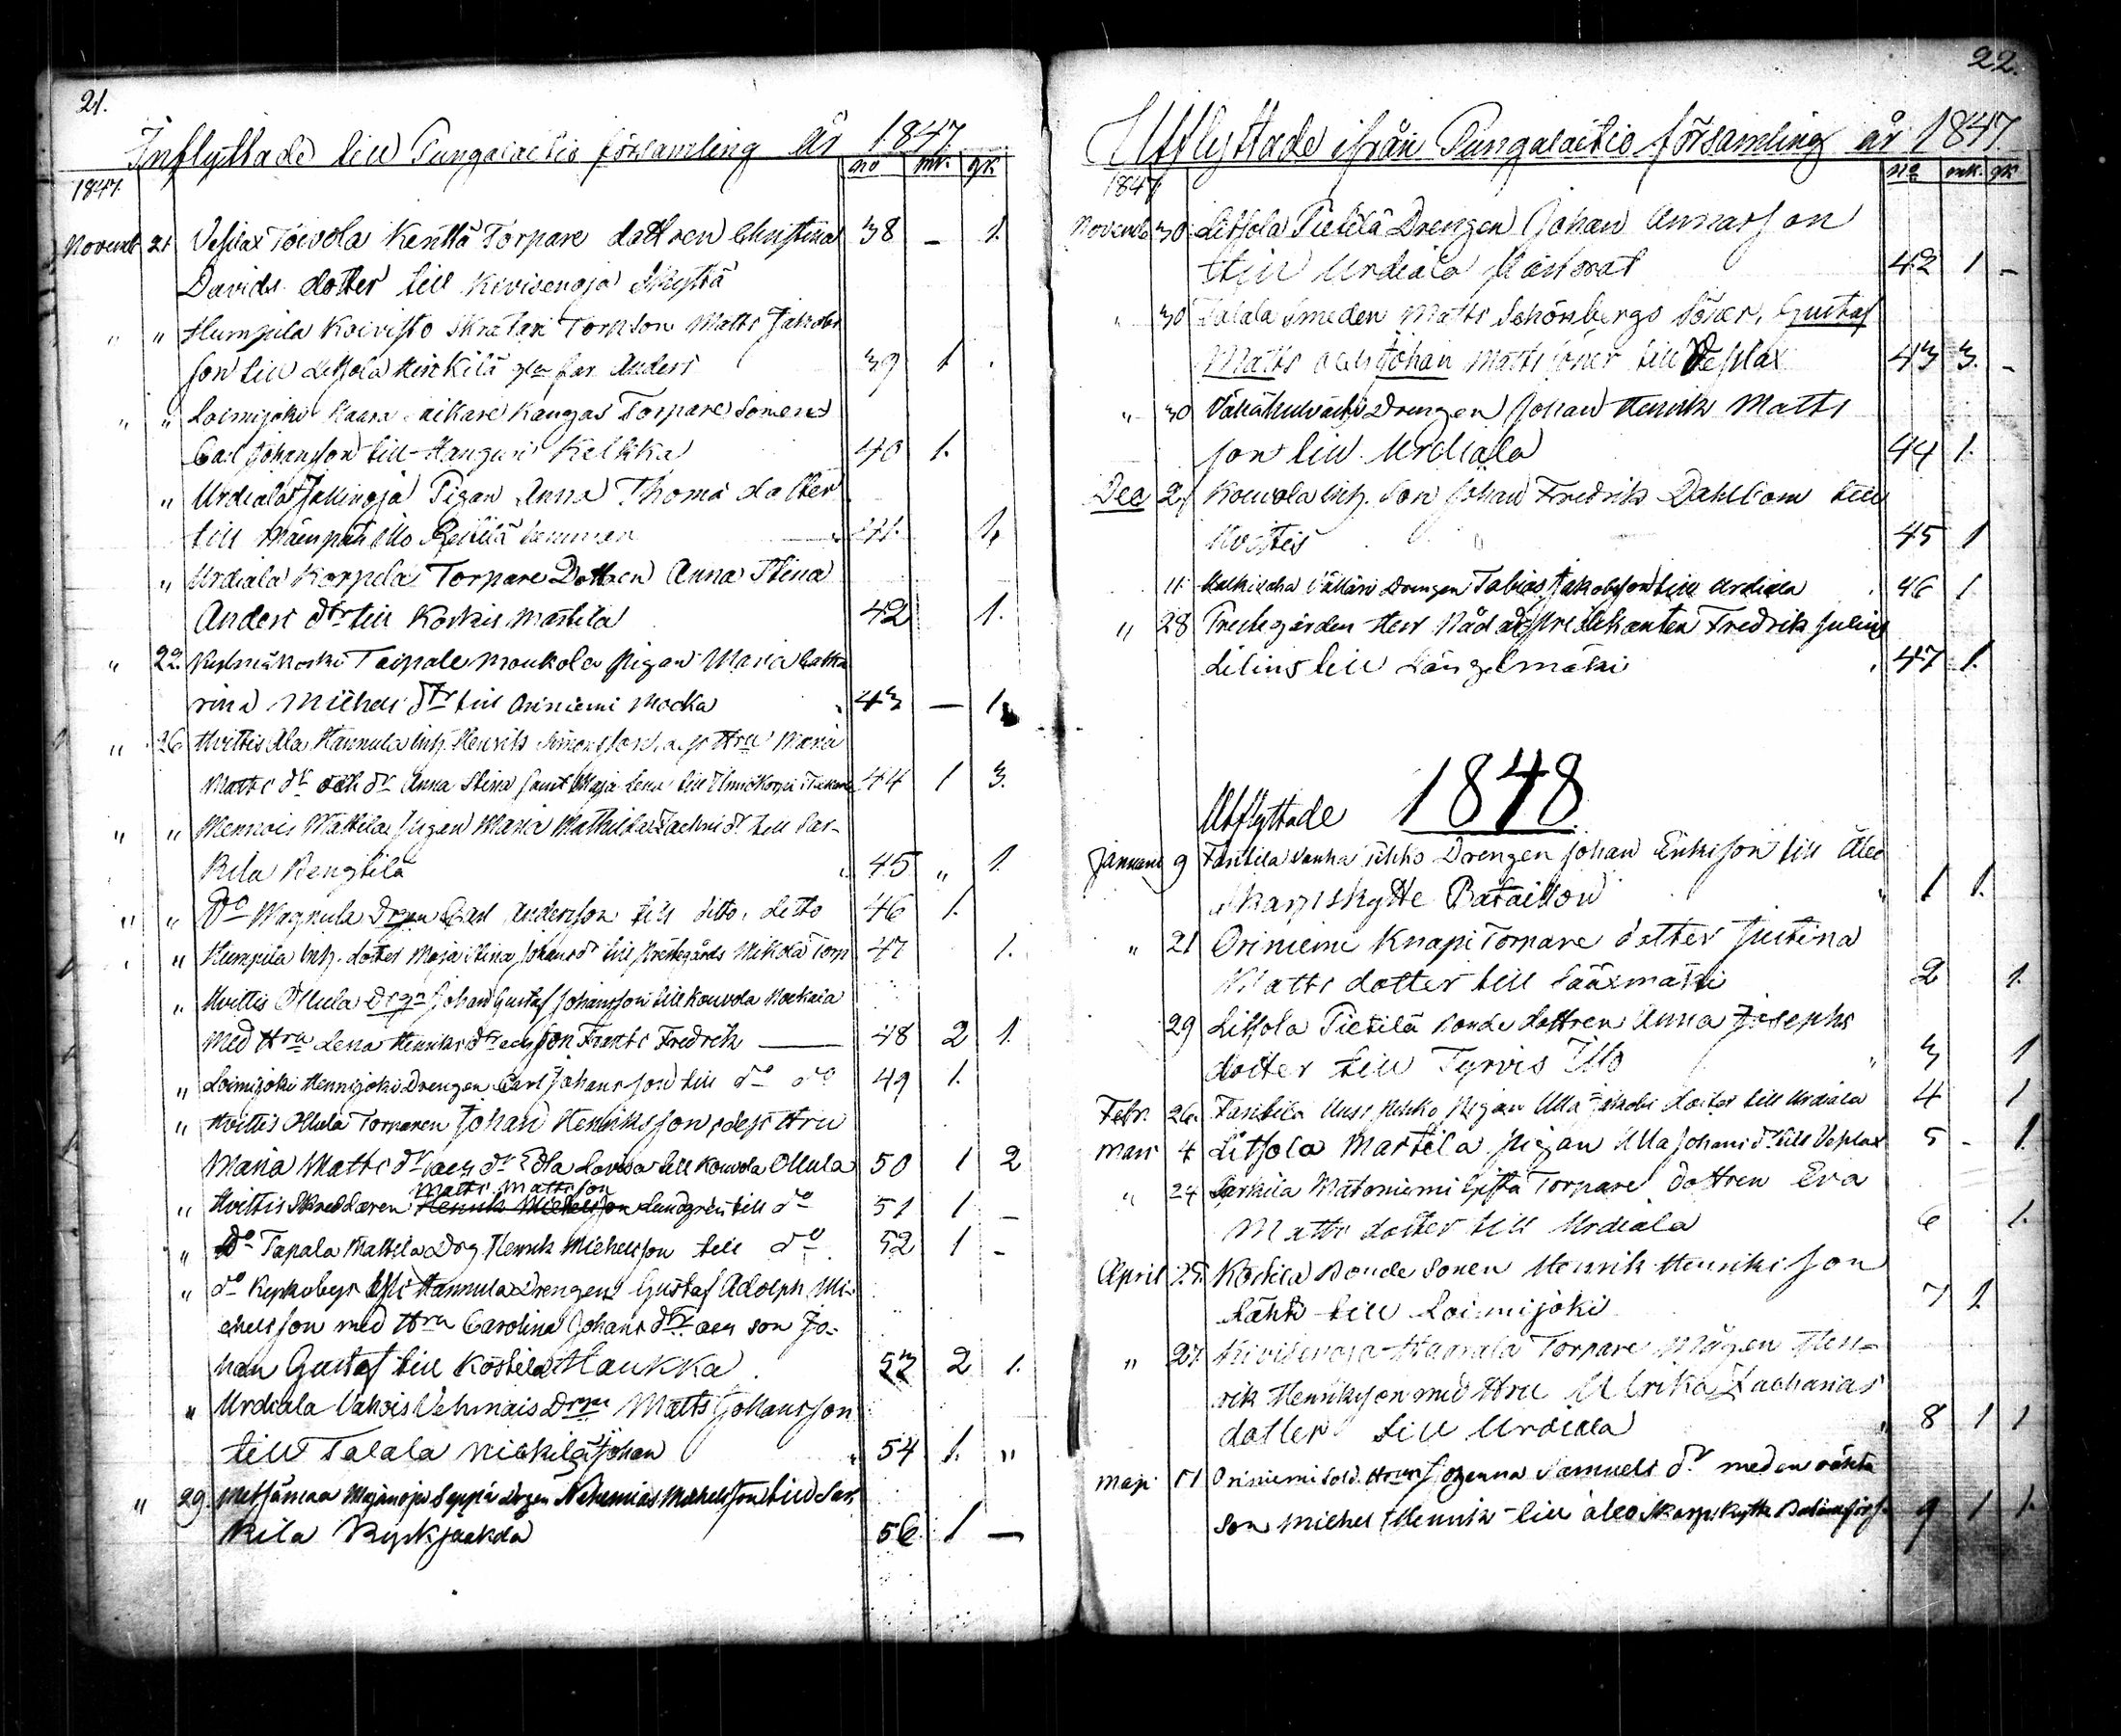 21.
Inflyttade till Pungalaitio församling År 1847
1847. no mk. qk.
Novemb 21 Vesilax Toivola Kenttä Torpare dottren Christina 38 – 1.
Davids dotter till Kivisenoja Skyttä
" " Humpila Koivisto Skrätari Torp son Matts Jakobs
son till Letsola Heikkilä Anders 39 1 .
" " Loimijoki Kangas Torpare Sonen
Carl Johansson till Kelkka 40 1.
" Urdiala Pigan Anna Thomæ dotter
till 41. 1.
" Urdiala Korpela Torpare Dottren Anna Stina
Anders dtr till Korkis Martila 42 1.
" 22 Taipale Moukola pigan Maria Catha
rina Michels dtr till Oriniemi Mocka 43 — 1.
" 26 Hvittis Ala Hannula inh. Henrik Simonsson, Hru Maria
Matts dr och dr Anna Stina samt Maja Lena till 44 1 3.
" " Mennois Mattila pigan Maria Mathilda dr till Sar-
kila Bengtilä 45 " 1.
" " Do Wagnula Drgn Carl Andersson till ditto, ditto 46 1.
" Humpila inh. dotter Maja Stina Johans dr till Prestegårds Mikola Torp 47 1.
" Hvittis Ollula Drgn Johan Gustaf Johansson till Kouvola
med Hru Lena Henriks dr och son Frants Fredrik — 48 2 1.
" Loimijoki Hennijoki Drengen Carl Johansson till do do 49 1.
" Hvittis Ollula Torparen Johan Henriksson, dess Hru
Maria Matts dr och dr Edla Lovisa till Kouvola Ollula 50 1 2
Matts Mattsson
" Hvittis Skreddaren Henrik Michelsson Lundgren till do 51 1 –
" Do Tapala Mattila Drg Henrik Michelsson till do. 52 1 –
" do Hannula Drengen Gustaf Adolph Mi-
chelsson med Hru Carolina Johans dtr och son Jo-
han Gustaf till Köstilä Haukka 53 2 1.
" Urdiala Vahois Vehmais Drgn Matts Johansson
till Talala Niekilä Johan " 54 1. "
" 29. Metsämaa Majanoja Seppä drgen Nehemias Michelsson till Sar-
kila 56 1 —
22.
Utflyttade ifrån Pungalaitio församling år 1847
1847 no mk. qk
Novemb 30 Letsola Pietilä Drengen Johan Annasson
till Urdiala Pastorat 42 1 –
" 30 Talala Smeden Matts Schönbergs Söner, Gustaf
Matts och Johan Matts söner till Vesilax 43 3. –
" 30 Drengen Johan Henrik Matts
son till Urdiala 44 1.
Dec 2 Kouvola inh. son Johan Fredrik Dahlbom till
Hvittis 45 1
11. Drengen Tobias Jakobsson till Urdiala 46 1.
" 28 Prestegården Herr Nådårs Predikanten Fredrik Julius
Lilius till Längelmäki 47 1.
Utflyttade 1848
Januari 9 Tantila Vanha Pehko Drengen Johan Eriksson till Åbo
Skarpskytte Bataillon " 1 1.
" 21 Oriniemi Knapi Torpare dotter Justina
Matts dotter till Sääxmäki 2 1.
29 Letsola Pietilä Bonde dottren Anna Josephs
dotter till Tyrvis Illo " 3 1
Febr. 26. Tantila Uusi Pehko Pigan Ulla Jakobs dotter till Urdiala 4 1
Mars 4 Letsola Martila pigan Ulla Johans dr till Vesilax 5 – 1.
" 24 Sarkila Matoniemi Torpare dottren Eva
Matts dotter till Urdiala 6 1.
April 25. Köstilä Bonde Sonen Henrik Henriksson
Lähti till Loimijoki 7 1
" 27. Kivisenoja Haarala Torpare Mågen Hen-
rik Henriksson med Hru Ulrika Zacharias
dotter till Urdiala " 8 1 1
Maji 17 Oriniemi Sold. Johanna Samuels dr med en oäkta
son Michel Henrik till Åbo Skarpskytte 9 1 1.